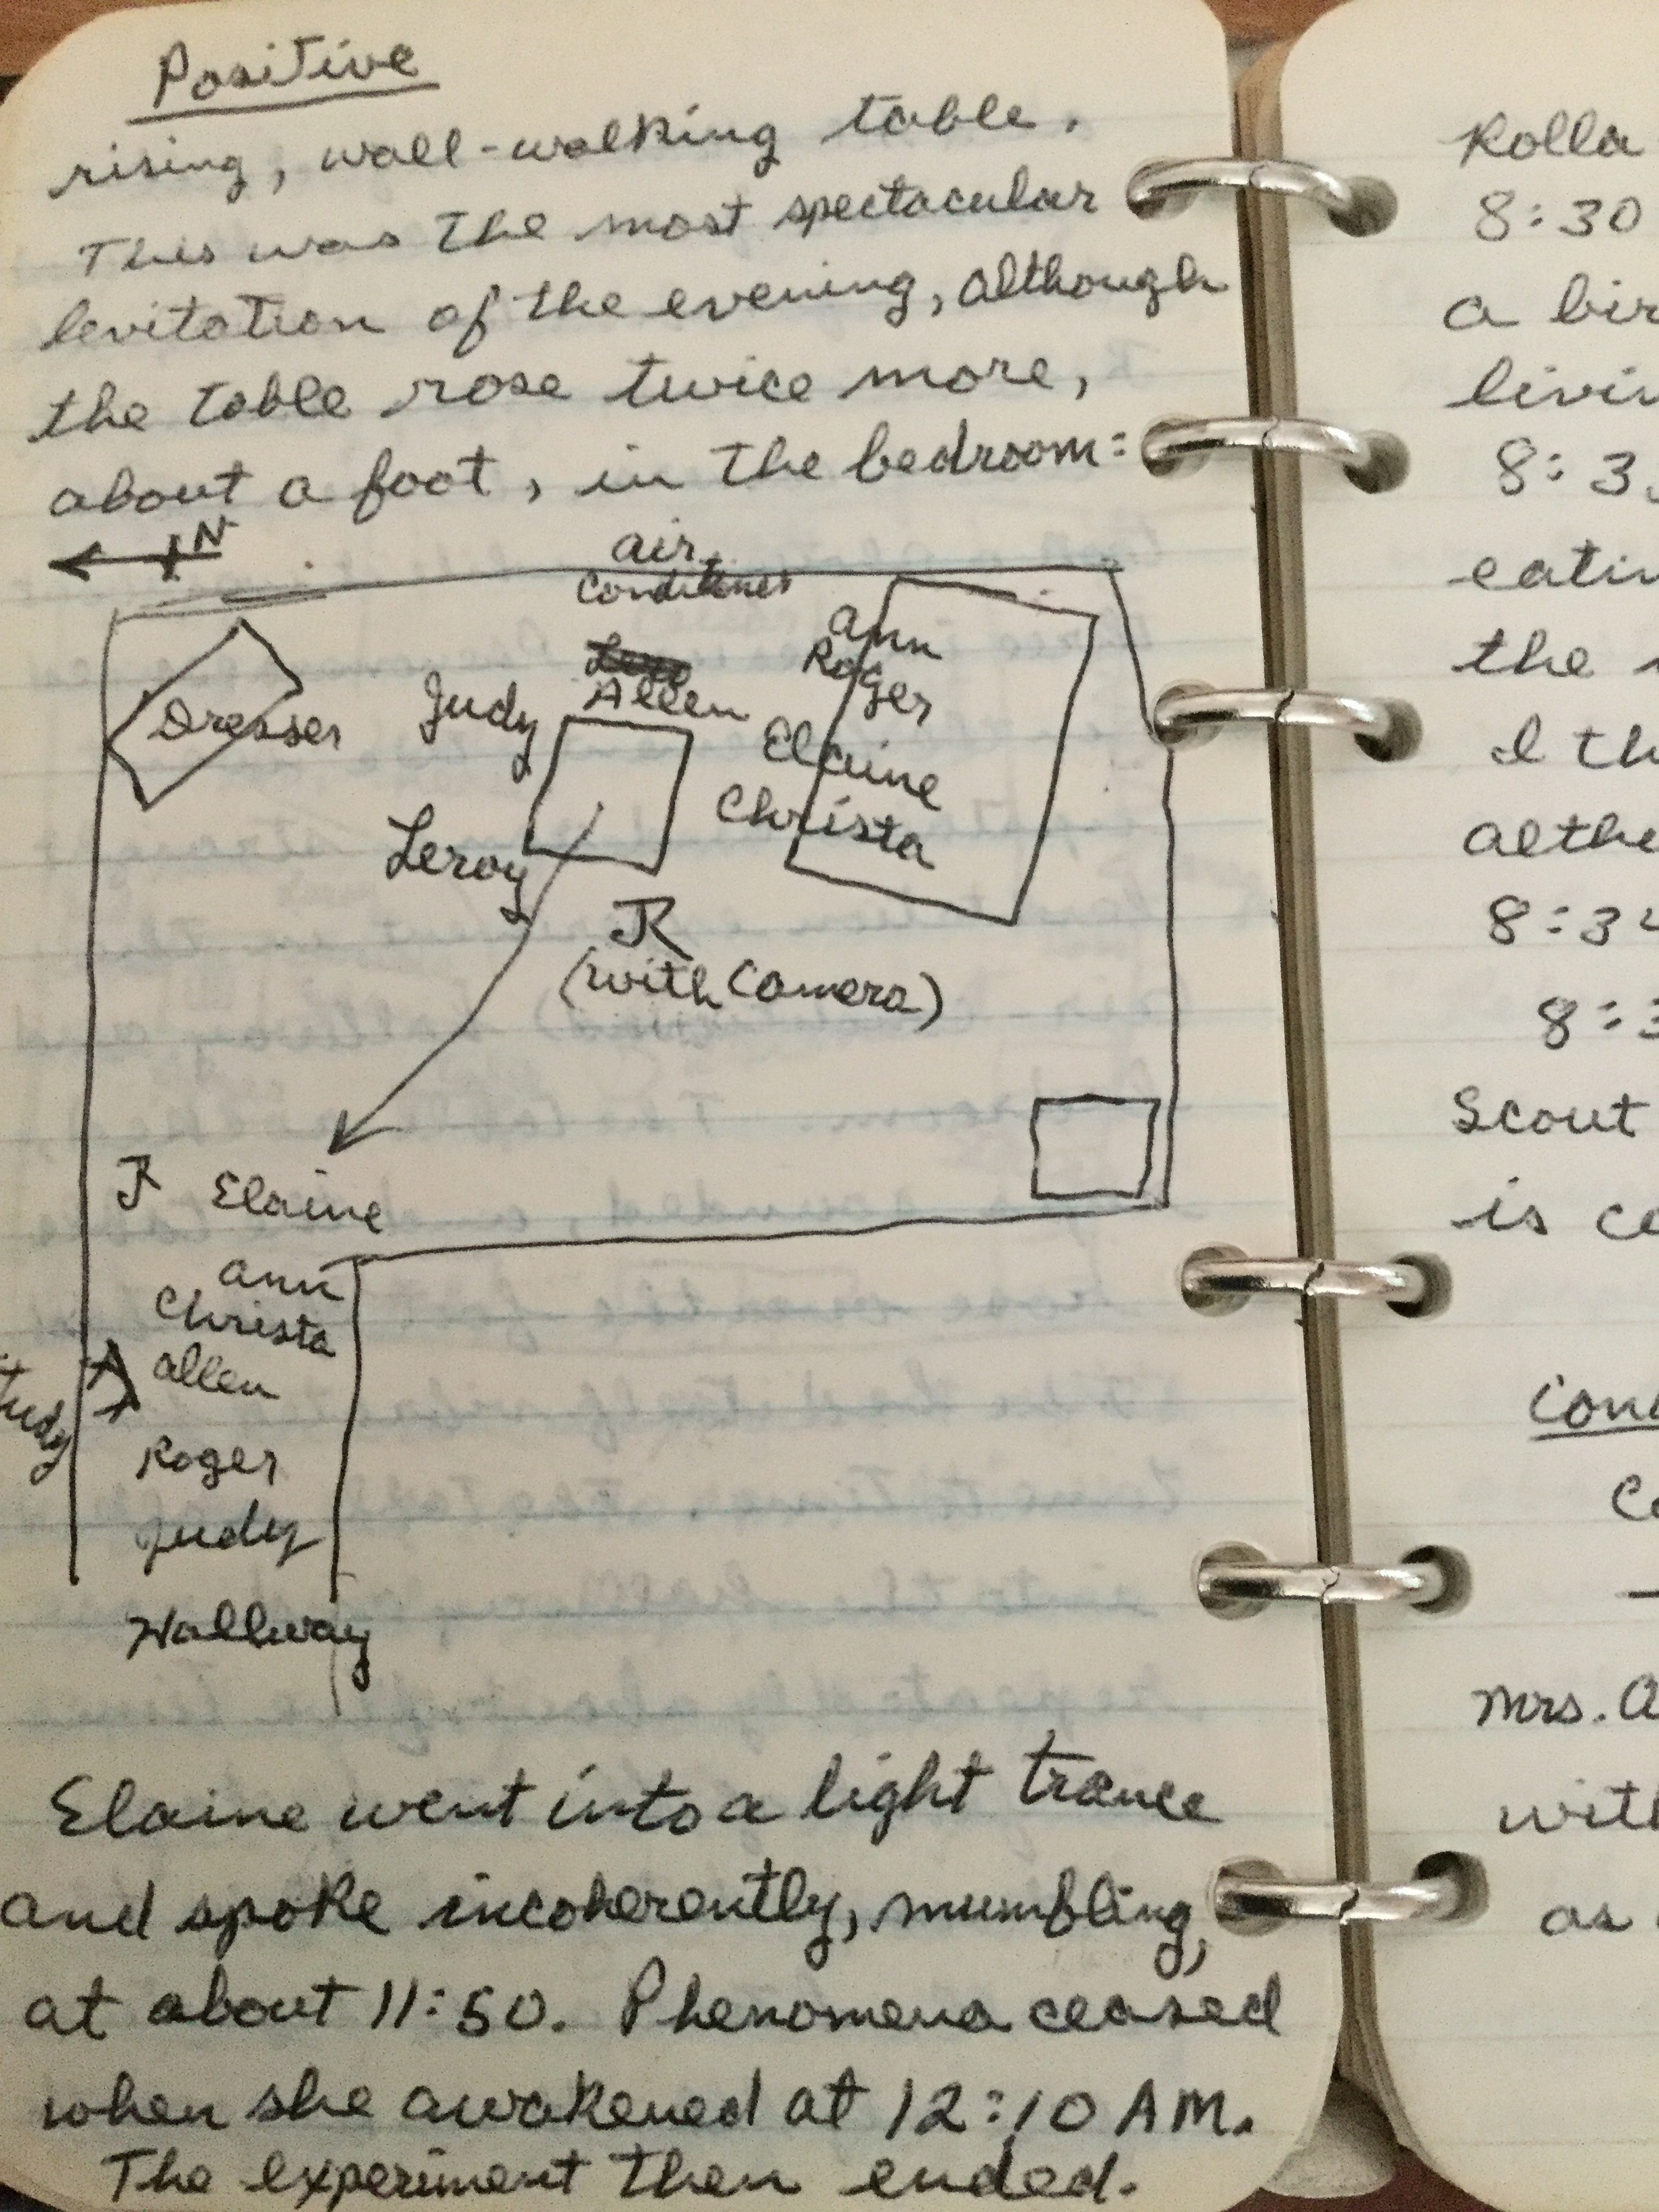 Positive
rising, wall-walking table.
This was the most spectacular
levitation of the evening, although
the table rose twice more,
about a foot, in the bedroom:
N
air
Conditioner
Ann
Roger
Allen
Judy
Dresser
Elaine
Christa
Leroy
JR
(with Camera)
J Elaine
Ann
Christa
Allen
Judy
Roger
Judy
Hallway
Elaine went into a light trance
and spoke incoherently, mumbling,
at about 11:50. Phenomena ceased
when she awakened at 12:10 AM.
The experiment then ended.
Rolla
8:30
a bir
livin
8:3
eatin
the
I th
altho
8:34
8:3
Scout
is co
Con
Co
Mrs. A
with
as